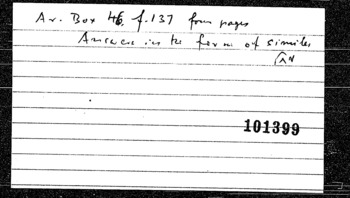 Ar. Box 46 f. 137 four pages
Answers in the form of similes
101399